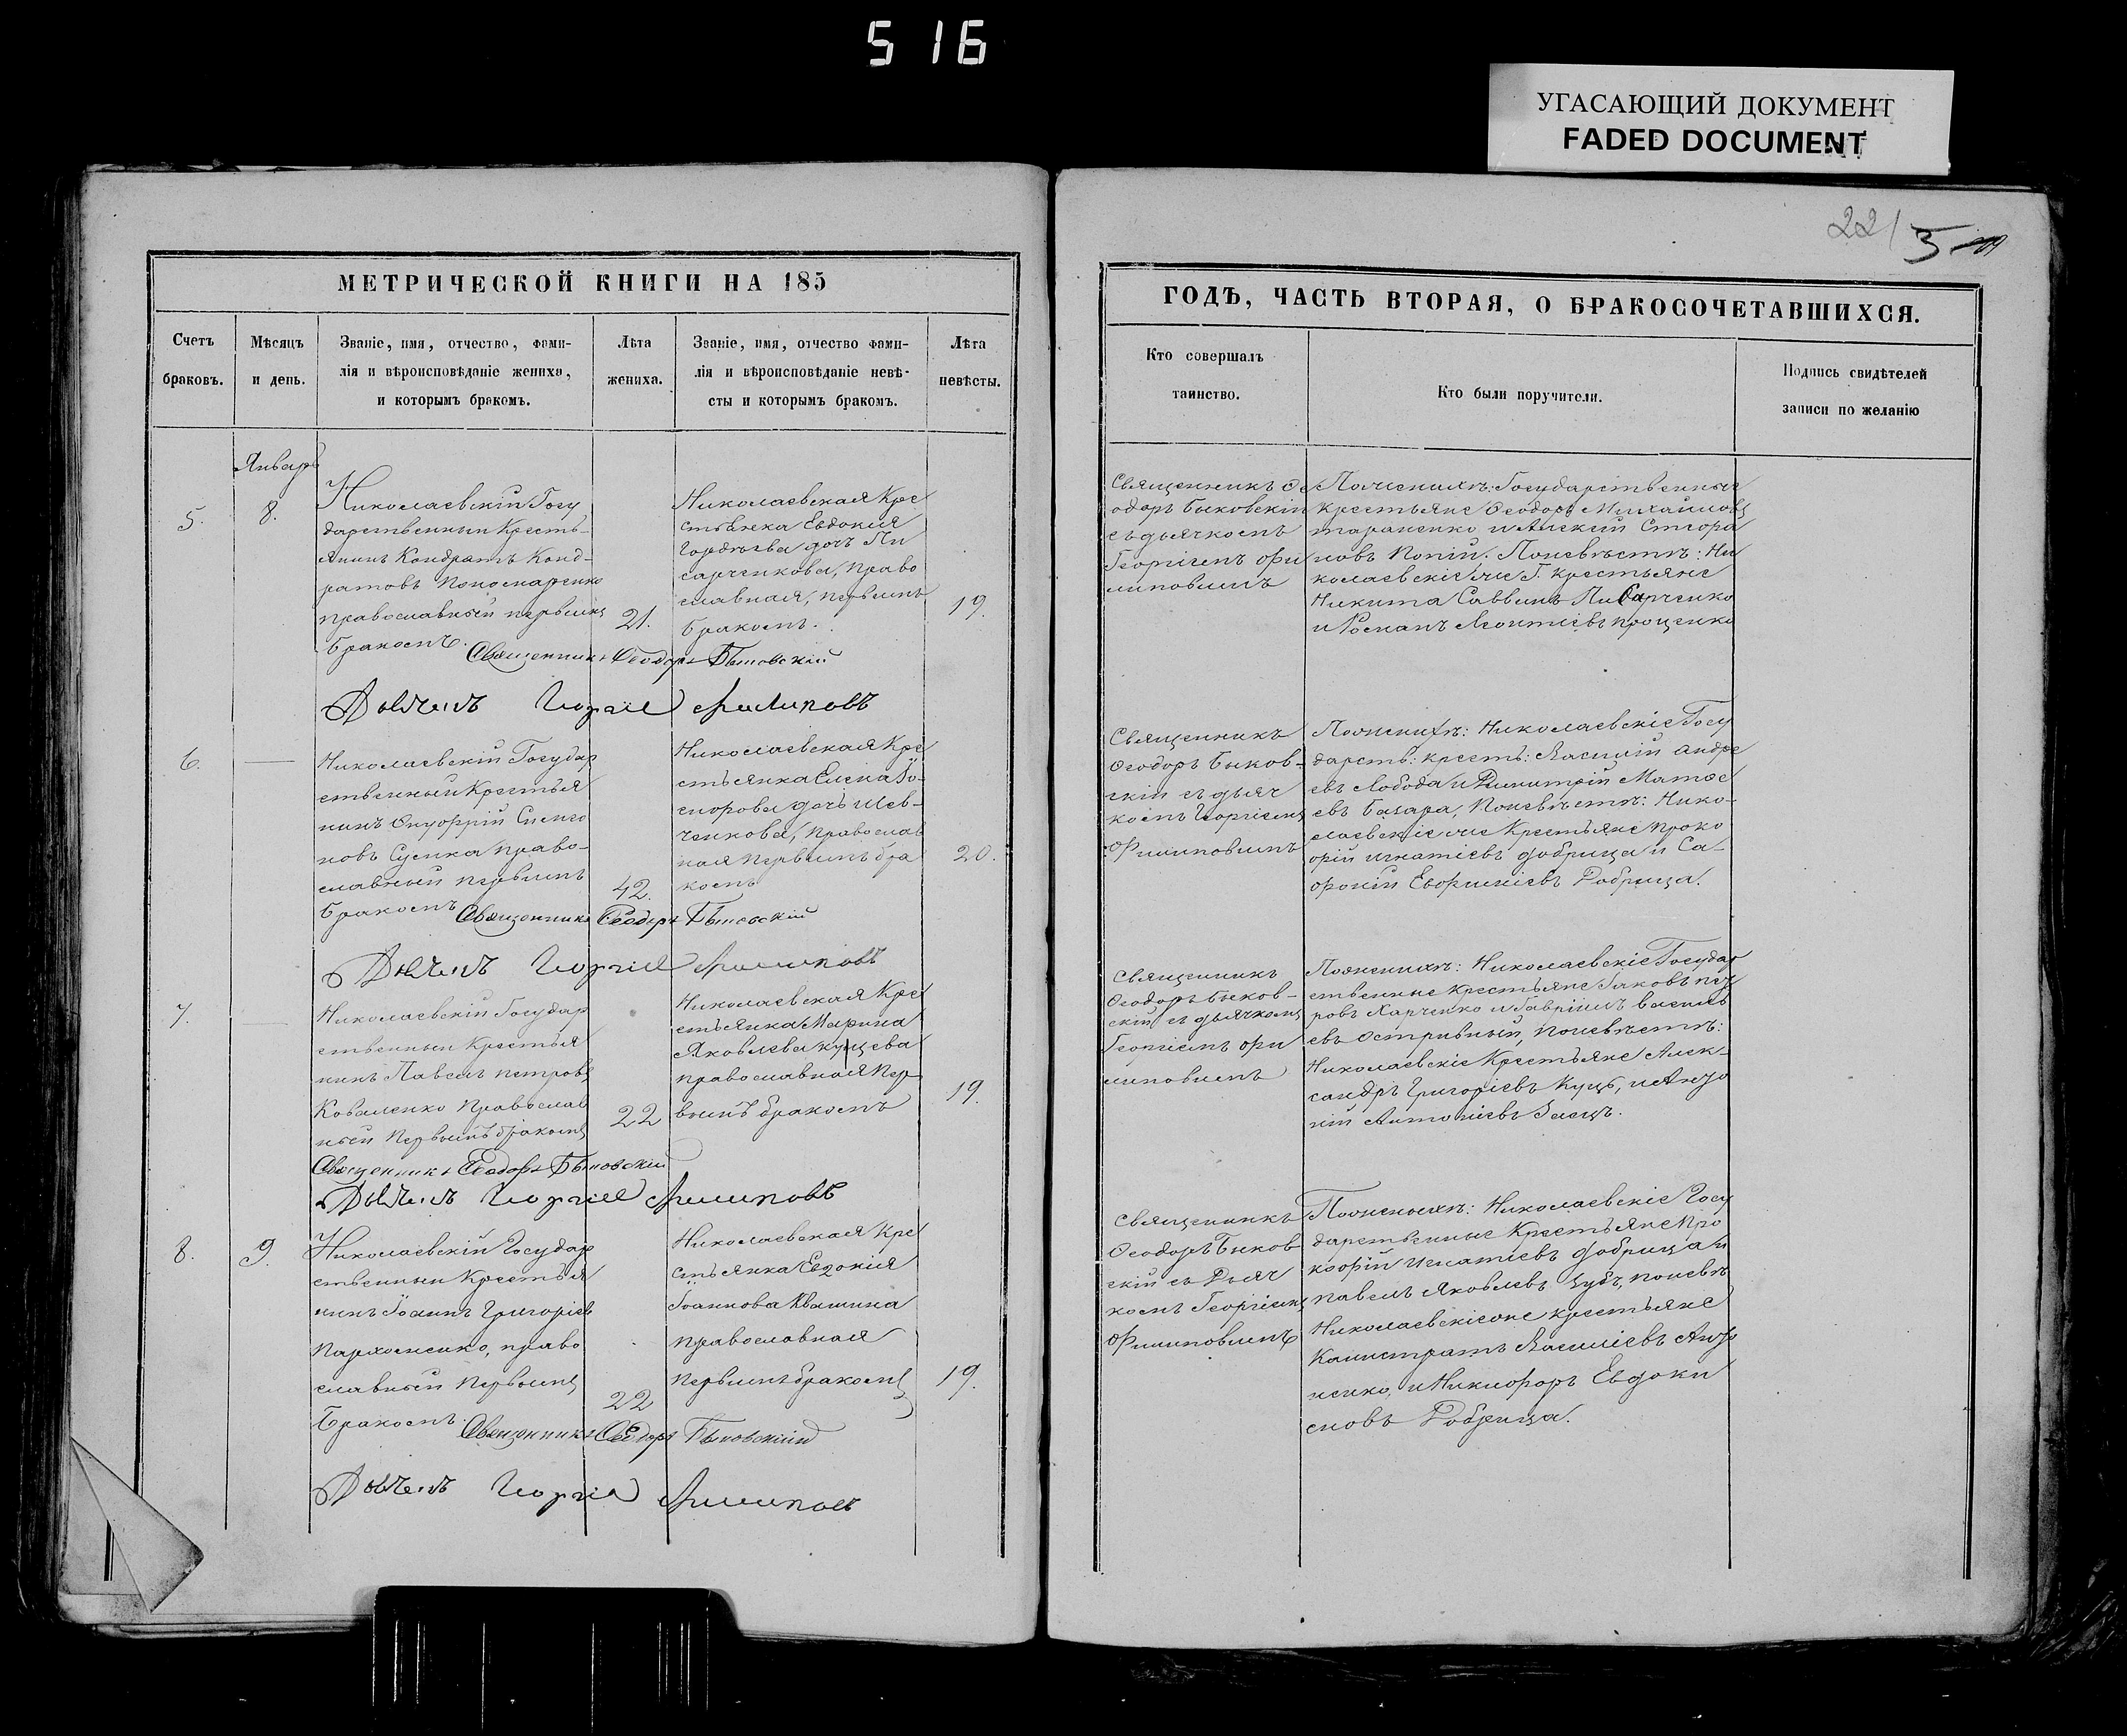 516
УГАСАЮЩИЙ ДОКУМЕНТ
FADED DOCUMENT
22/
5
МЕТРИЧЕСКОЙ КНИГИ НА 185
Счетъ
браковъ.
Мѣсяцъ
и день.
Званіе, имя, отчество, фами-
лія и вѣроисповѣданіе жениха,
и которымъ бракомъ.
Лѣта
жениха.
Званіе, имя, отчество фами-
лія и вѣроисповѣданіе невѣ-
сты и которымъ бракомъ.
Лѣта
невѣсты.
Январь
5.
8.
Николаевскій Госу
дарственный Кресть-
янинъ Кондратъ Конд-
ратовъ Пономаренко
православный первымъ
бракомъ.
21.
Николаевская Кре
стьянка Евдокия
Гордѣева дочь Пи
сарченкова, право
славная, первымъ
бракомъ.
19.
Священникъ Ѳеодоръ Быковскій
Дьячекъ Георгій Филиповъ
6.
Николаевскій Государ
ственный Крестья
нинъ Онуфрій
новъ Сусика право-
славный первымъ
бракомъ
42.
Николаевская Кре
стьянка Елена Ѳо-
дорова дочь Шев-
ченкова, православ
ная первымъ бра
комъ
20.
Священникъ Ѳеодоръ Быковскій
Дьячекъ Георгій Филиповъ
7.
Николаевскій Государ
ственный Крестья
нинъ Павелъ Петровъ
Коваленко Православ
ный первымъ бракомъ
22
Николаевская Кре
стьянка Марина
Яковлева Куцева
православная пер
вымъ бракомъ
19.
Священникъ Ѳеодоръ Быковскій
Дьячекъ Георгій Филиповъ
8.
9.
Николаевскій Государ
ственный Крестья
нинъ Іоаннъ Григоріев
Пархоменко, право
славный первымъ
бракомъ.
22
Николаевская Кре
стьянка Евдокія
Іоаннова Квашина
православная
первымъ бракомъ
19.
Священникъ Ѳеодоръ Быковскій
Дьячекъ Георгій Филиповъ
ГОДЪ, ЧАСТЬ ВТОРАЯ, О БРАКОСОЧЕТАВШИХСЯ.
Кто совершалъ
таинство.
Кто были поручители.
Подпись свидѣтелей
записи по желанію
Священникъ Ѳе
одоръ Быковскій
съ дьячкомъ
Георгіемъ Фи
липовымъ
Поженихѣ: Государственные
крестьяне Ѳеодоръ Михайловъ
Тараненко и Алексій
новъ Попій. Поневѣстѣ: Ни
колаевскіе же Г. крестьяне
Никита Саввинъ Писарченко
и Романъ Леонтіевъ Проценко
Священникъ
Ѳеодоръ Быков-
скій съ дьяч
комъ Георгіемъ
Филиповымъ
Поженихѣ: Николаевскіе Госу
дарств: крест: Василій Андре
евъ Лобода и Димитрій Матѳе
евъ Базара, Поневѣстѣ: Нико-
лаевскіе же Крестьяне Проко
фій Игнатіевъ Добрица и Са-
фроній Евфиміевъ Добрица.
Священникъ
Ѳеодоръ Быков-
скій съ дьячкомъ
Георгіемъ Фи
липовымъ
Поженихѣ: Николаевскіе Государ
ственные крестьяне Іаковъ Пет
ровъ Харченко и Гавріилъ Василь
евъ Остривный, Поневѣстѣ:
Николаевскіе Крестьяне Алек-
сандръ Григоріевъ Куцъ, и
ній Антоніевъ Заецъ.
Священникъ
Ѳеодоръ Быков
скій съ Дьяч
комъ Георгіемъ
Филиповымъ
Поженихѣ: Николаевскіе Госу
дарственные Крестьяне Про
кофій Игнатіевъ Добрица и
Павелъ Яковлевъ Зубъ, поневѣ
Николаевскіе же крестьяне
Калистратъ Василіевъ
ненко, и Никифоръ Евдоки
мовъ Добрица.